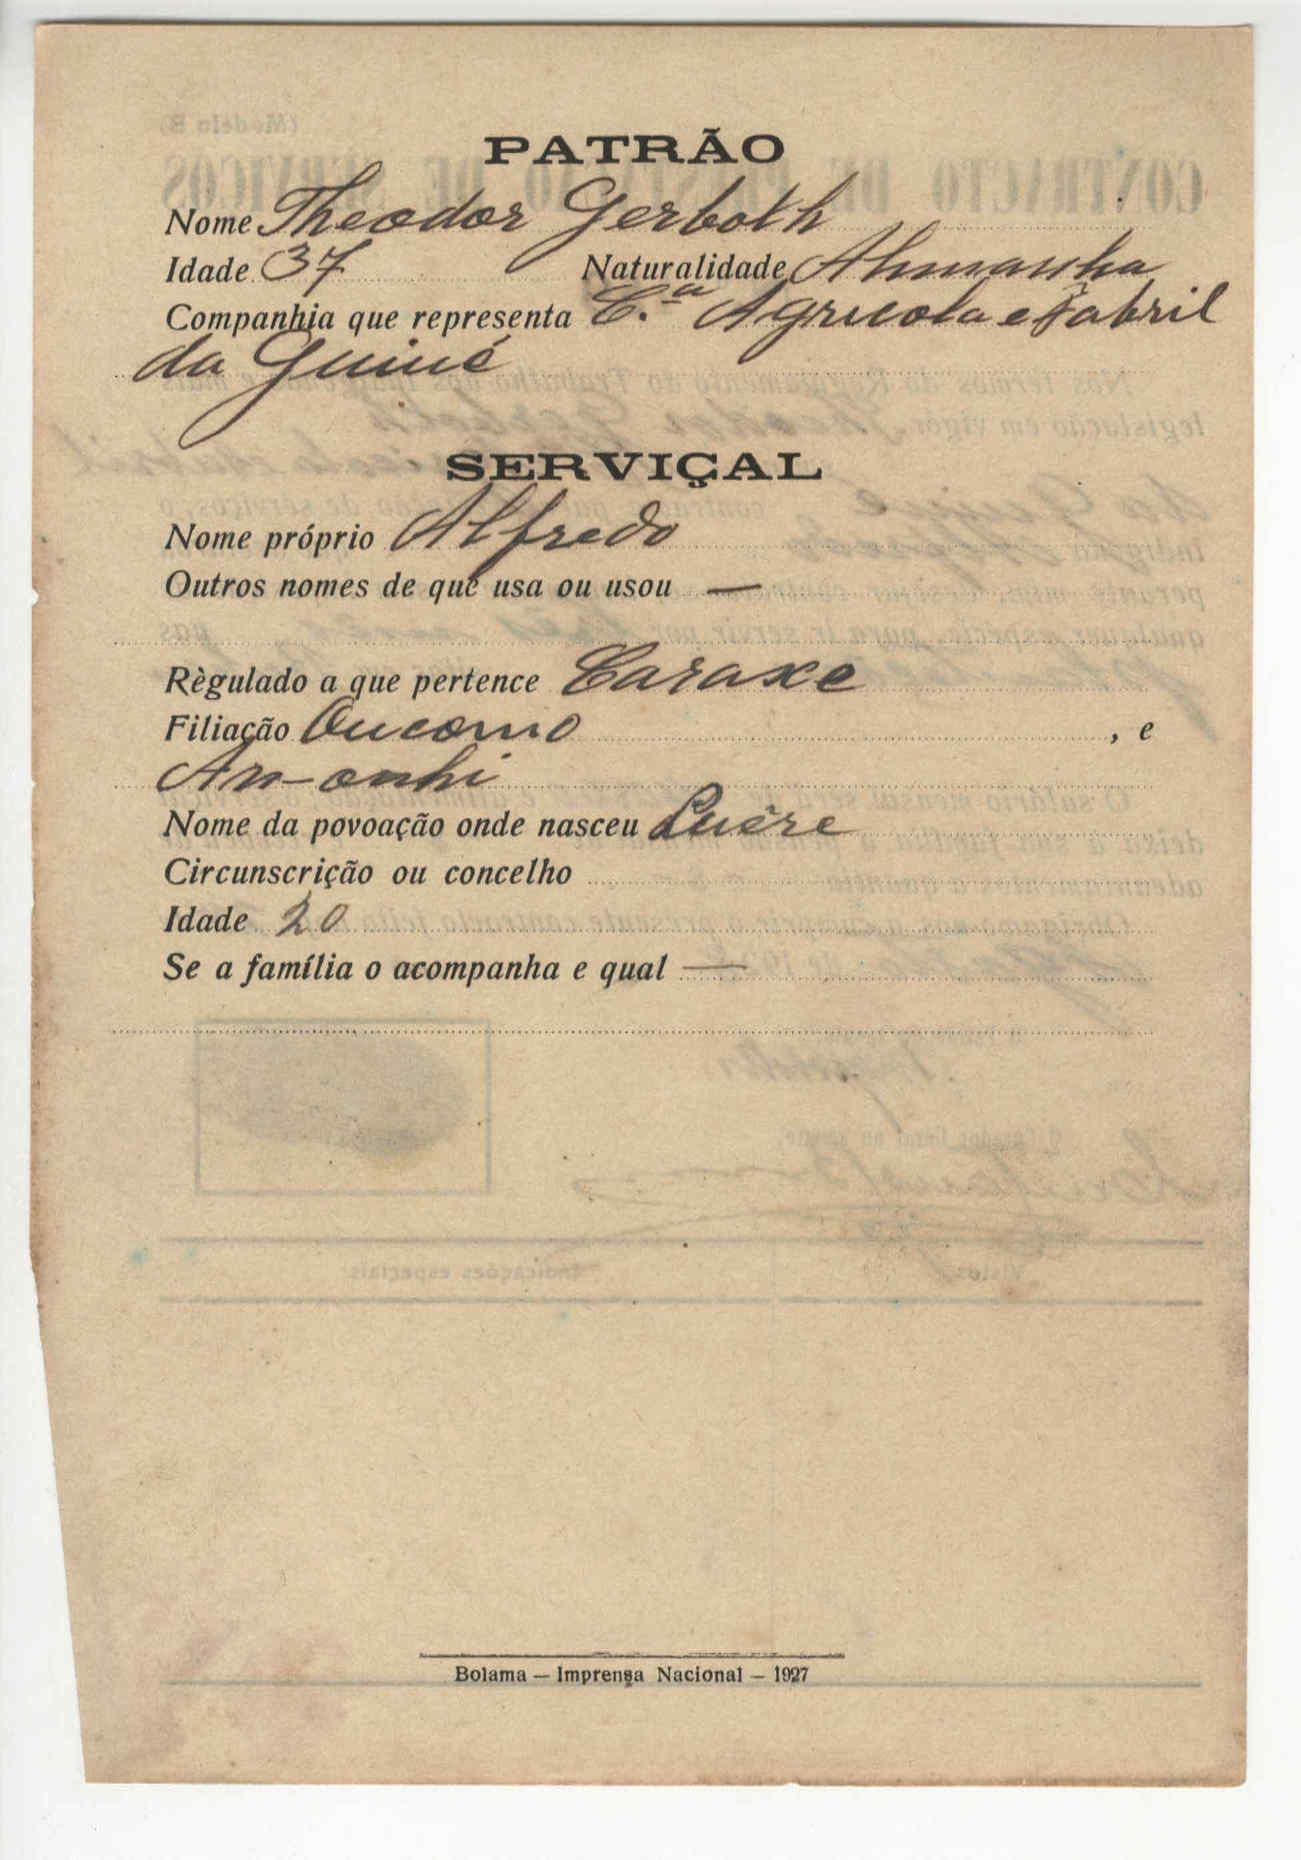 PATRÃO
Nome Theodor Gerboth
Idade 37 Naturalidade Alemanha
Companhia que representa C.ª Agricola e Fabril
da Guiné
SERVIÇAL
Nome próprio Alfredo
Outros nomes de que usa ou usou —
Règulado a que pertence Caraxe
Filiação Oucomo , e
An-onhi
Nome da povoação onde nasceu Luêre
Circunscrição ou concelho
Idade 20
Se a família o acompanha e qual —
Bolama — Imprensa Nacional — 1927